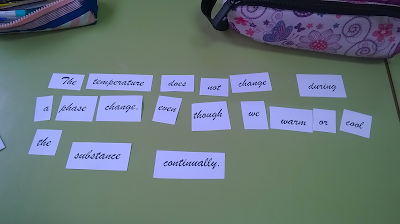 The temperature does not change during
a phase change. even though we warm or cool
the substance continually.